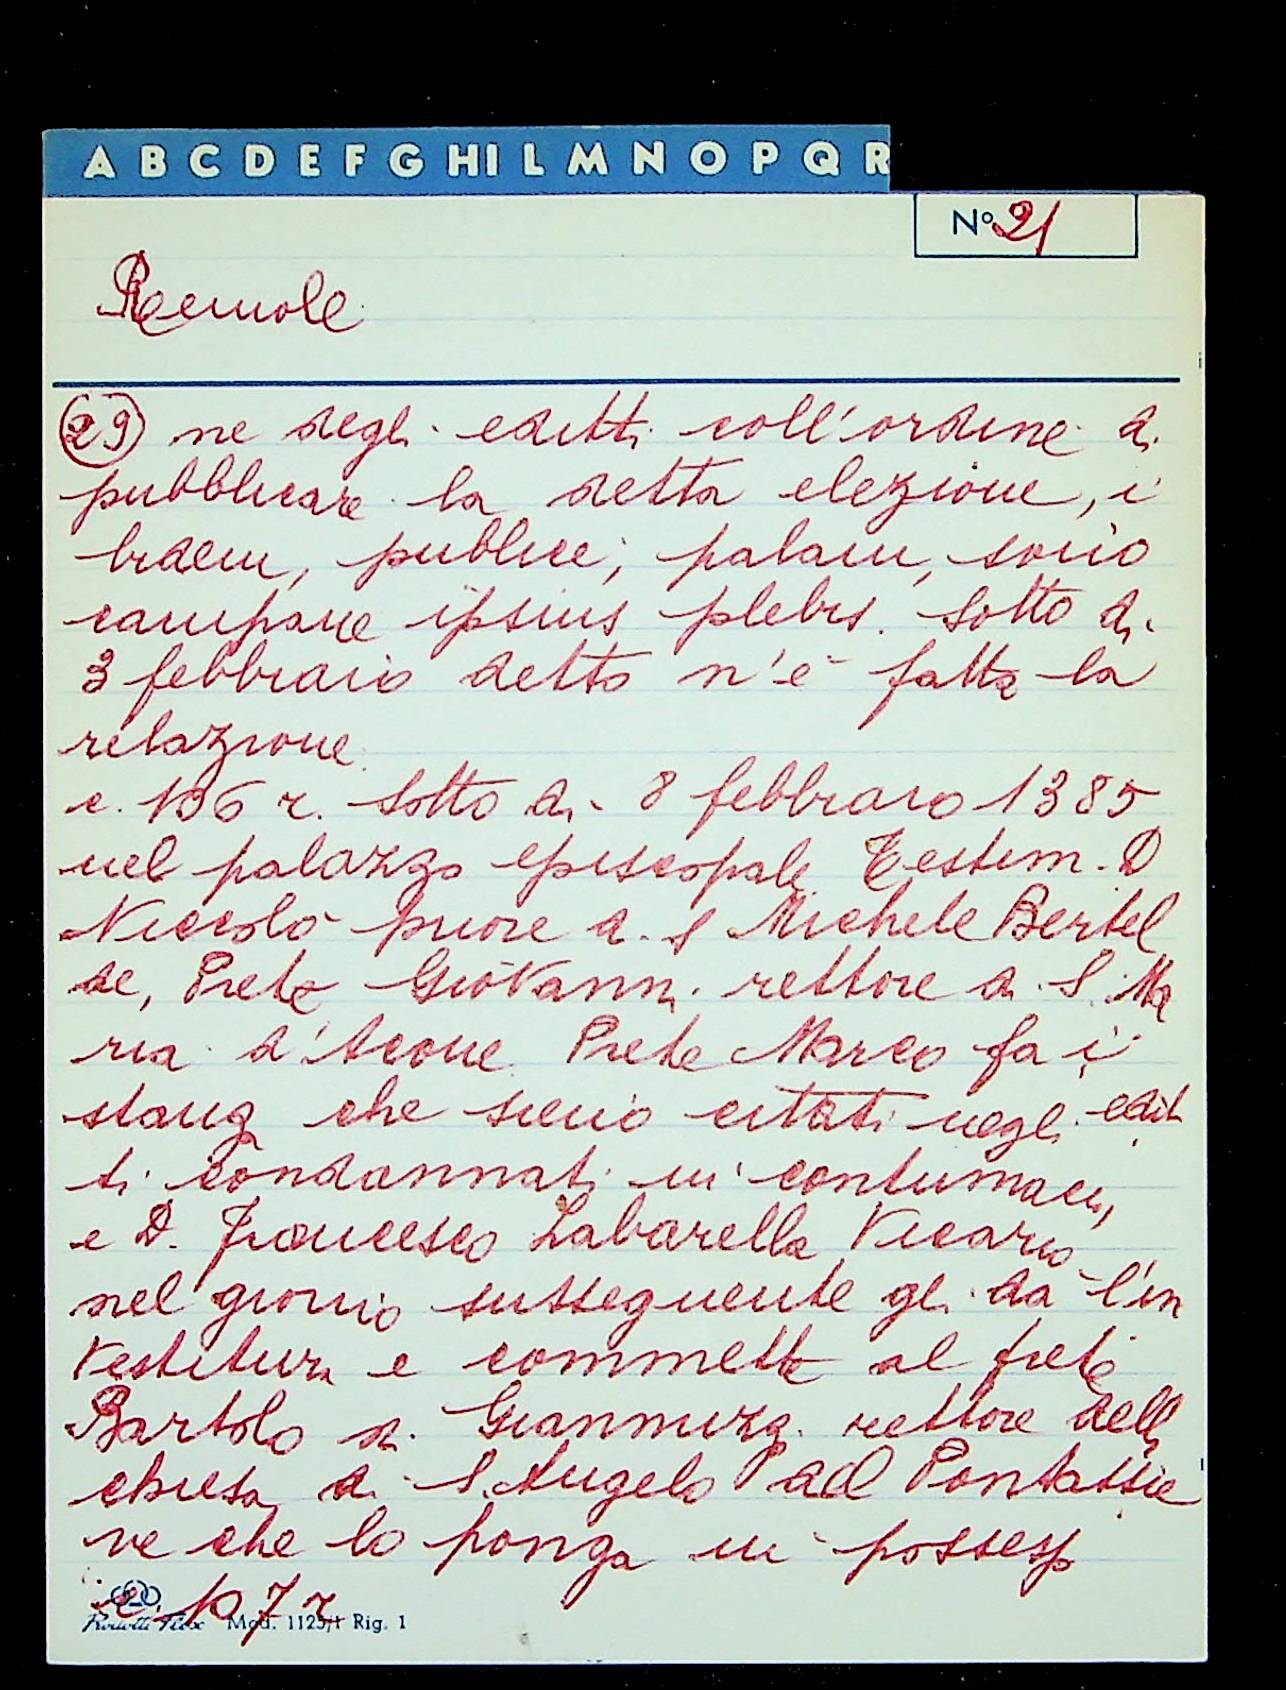 A B C D E F G HI L M N O P Q R
N° 21
Remole
29 ne degli editti coll'ordine di
pubblicare la detta elezione, i
bidem, publice, palam, sono
campane ipsius plebis. Sotto di
3 febbraio detto n'è fatta la
relazione
c. 106 r. Sotto di 8 febbraio 1385
nel palazzo episcopale Testim. D
Niccolò priore di S Michele Bertel
de, Prete Giovanni rettore di S. Ma
ria d'Acone Prete Marco fa i
stanza che sieno citati negli edit
ti condannati in contumacia,
e D. Francesco Zabarella Vicario
nel giorno susseguente gli dà l'in
vestitura e commette al prete
Bartolo di Giannuzzi rettore della
chiesa di S. Angelo ad Pontassie
ve che lo ponga in possesso
c. 107 r
Mod. 1125/1 Rig. 1